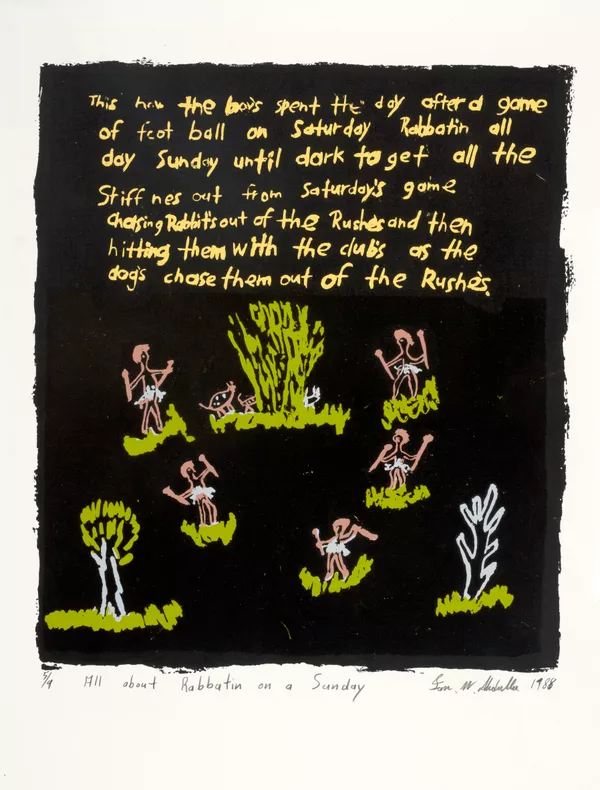 This how the boys spent the day after a game
of foot ball on Saturday Rabbatin all
day Sunday until dark to get all the
Stiff nes out from Saturday's game
chasing Rabbit's out of the Rushes and then
hitting them with the club's as the
dog's chase them out of the Rushe's.
5/9 All about Rabbatin on a Sunday Ian. W. Abdulla 1988